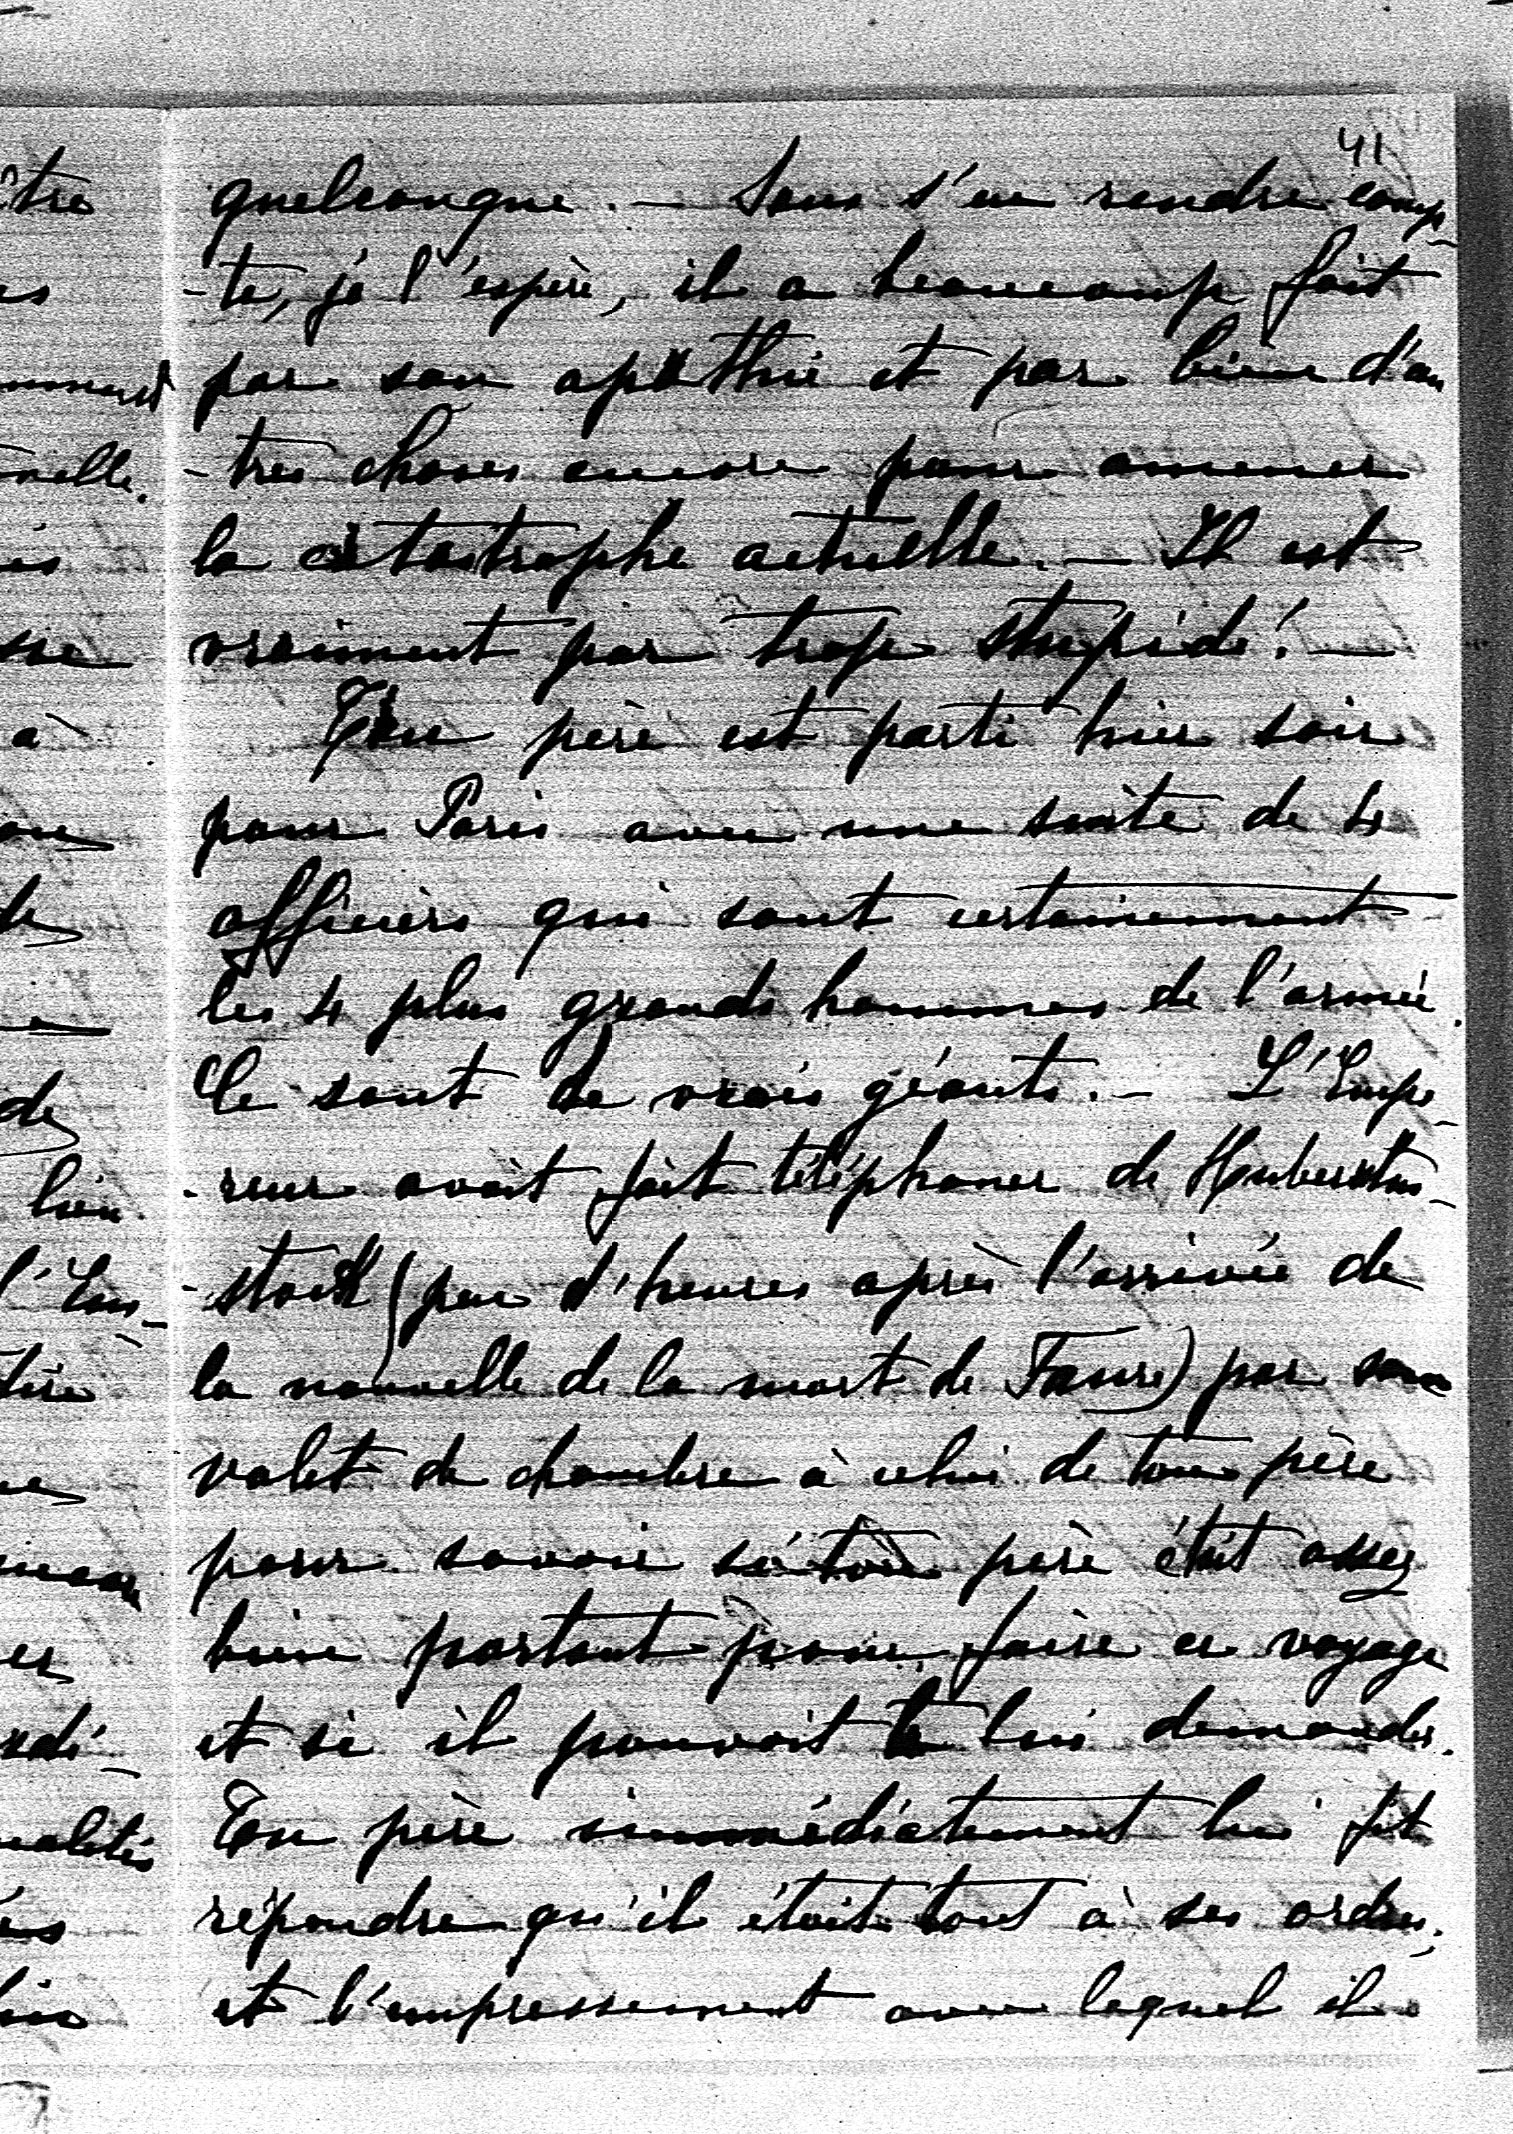 41
quelconque. — Sans s'en rendre comp-
-te, je l'espère, il a beaucoup fait
par son apathie et par bien d'au
-tres choses encore pour amener
la catastrophe actuelle. — Il est
vraiment par trop stupide! —
Ton père est parti hier soir
pour Paris avec une suite de 4
officiers qui sont certainement
les 4 plus grands hommes de l'armée.
Ce sont de vrais géants. — L'Empe-
-reur avait fait téléphoner de Hubertus-
-stock (peu d'heures après l'arrivée de
la nouvelle de la mort de Faure) par son
valet de chambre à celui de ton père
pour savoir si ton père était assez
bien portant pour faire ce voyage
et si il pouvait le lui demander.
Ton père immédiatement lui fit
répondre qu'il était tout à ses ordres,
et l'empressement avec lequel il